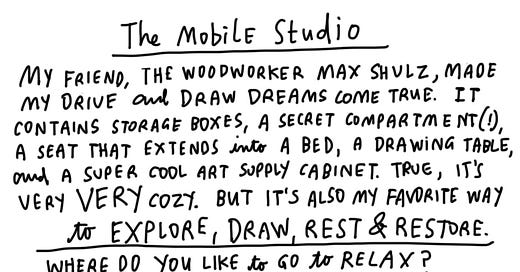 The Mobile Studio
MY FRIEND, THE WOODWORKER MAX SHULZ, MADE
MY DRIVE and DRAW DREAMS COME TRUE. IT
CONTAINS STORAGE BOXES, A SECRET COMPARTMENT(!),
A SEAT THAT EXTENDS into A BED, A DRAWING TABLE,
and A SUPER COOL ART SUPPLY CABINET. TRUE, IT'S
VERY VERY COZY. BUT IT'S ALSO MY FAVORITE WAY
to EXPLORE, DRAW, REST & RESTORE.
WHERE DO YOU LIKE to GO to RELAX?